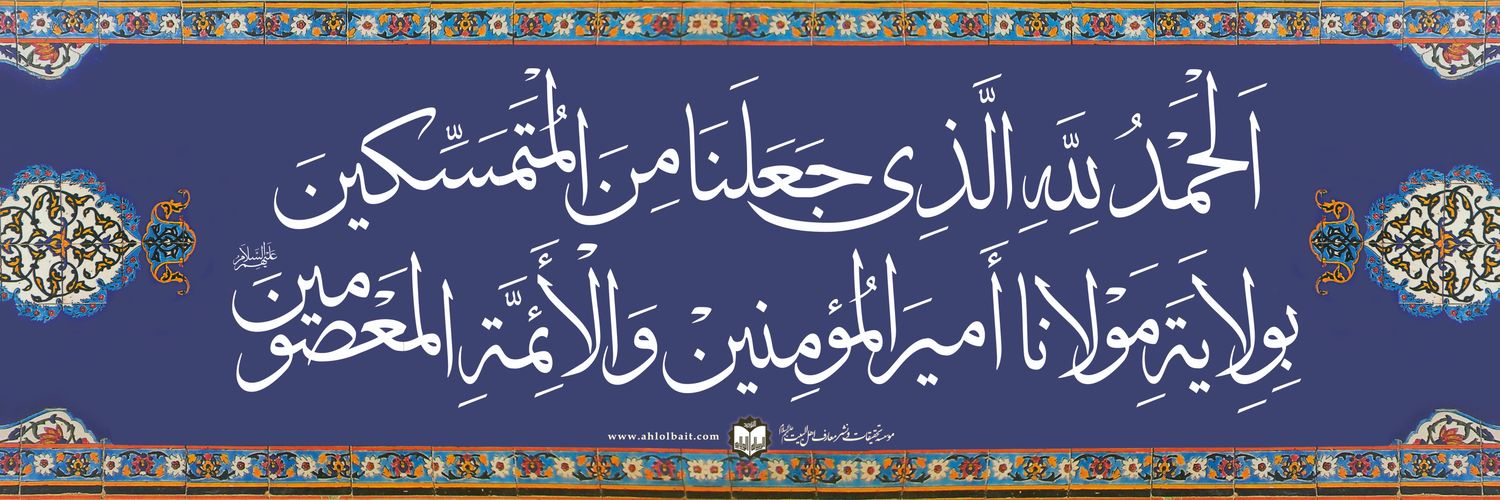 اَلْحَمْدُ لِلَّهِ الَّذِی جَعَلَنَا مِنَ الْمُتَمَسِّکینَ
بِوِلِایَةِ مَوْلانا أَمیرَالْمُؤمِنینْ وَالْأَئِمَّةِ الْمَعَصُومینَ
عَلَیْهِمُ السَّلَامْ
www.ahlolbait.com
موسسه تحقیقات و نشر معارف اهل البیت علیهم‌السلام